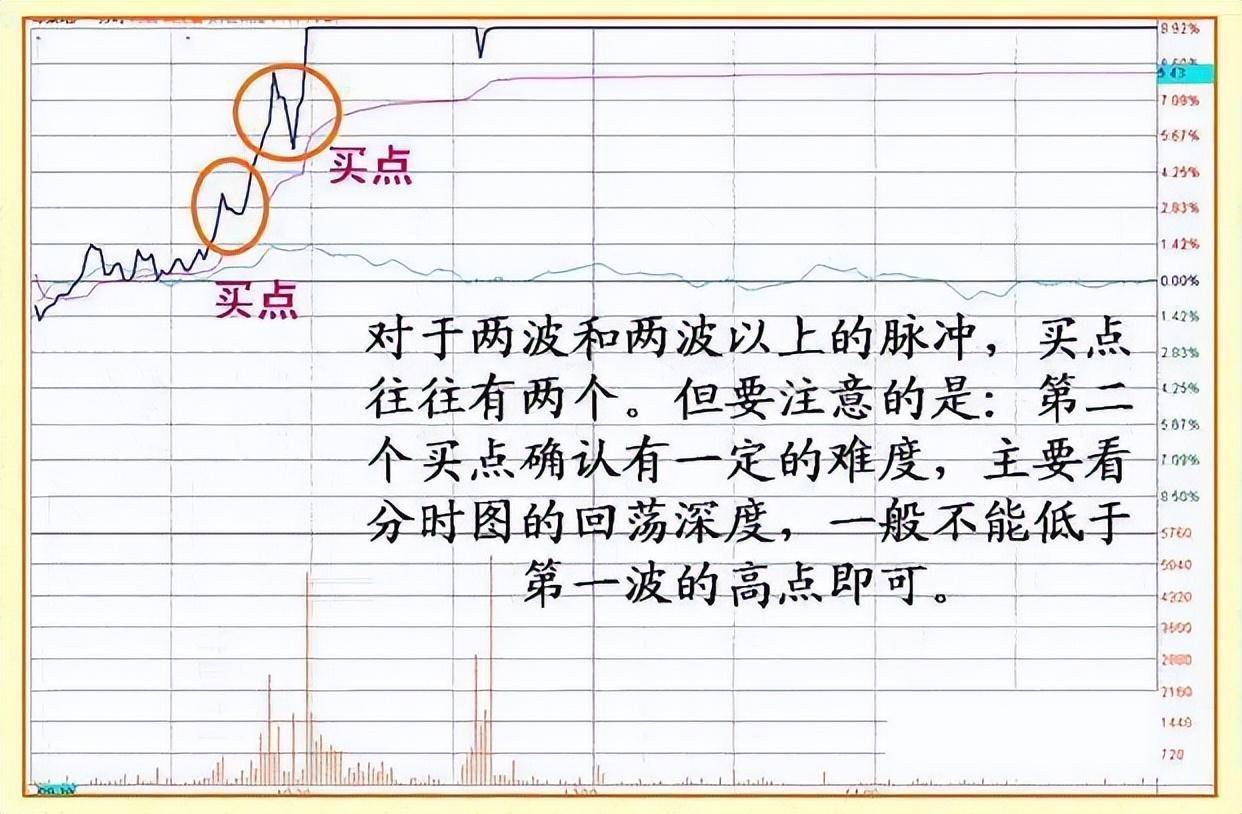 8.92%
7.09%
买点
5.67%
4.25%
2.83%
1.42%
买点
0.00%
1.42%
对于两波和两波以上的脉冲，买点
2.83%
往往有两个。但要注意的是：第二
4.25%
个买点确认有一定的难度，主要看
分时图的回荡深度，一般不能低于
5760
第一波的高点即可。
5040
4320
2160
1440
720